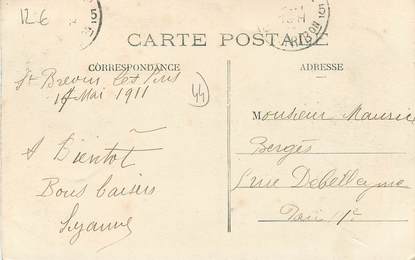 12 €
CARTE POSTALE
CORRESPONDANCE
ADRESSE
St Brevin les Pins
14 Mai 1911
44
A Bientôt
Bons baisers
Suzanne
Monsieur Maurice
Bergès
rue Debelleyme
Paris